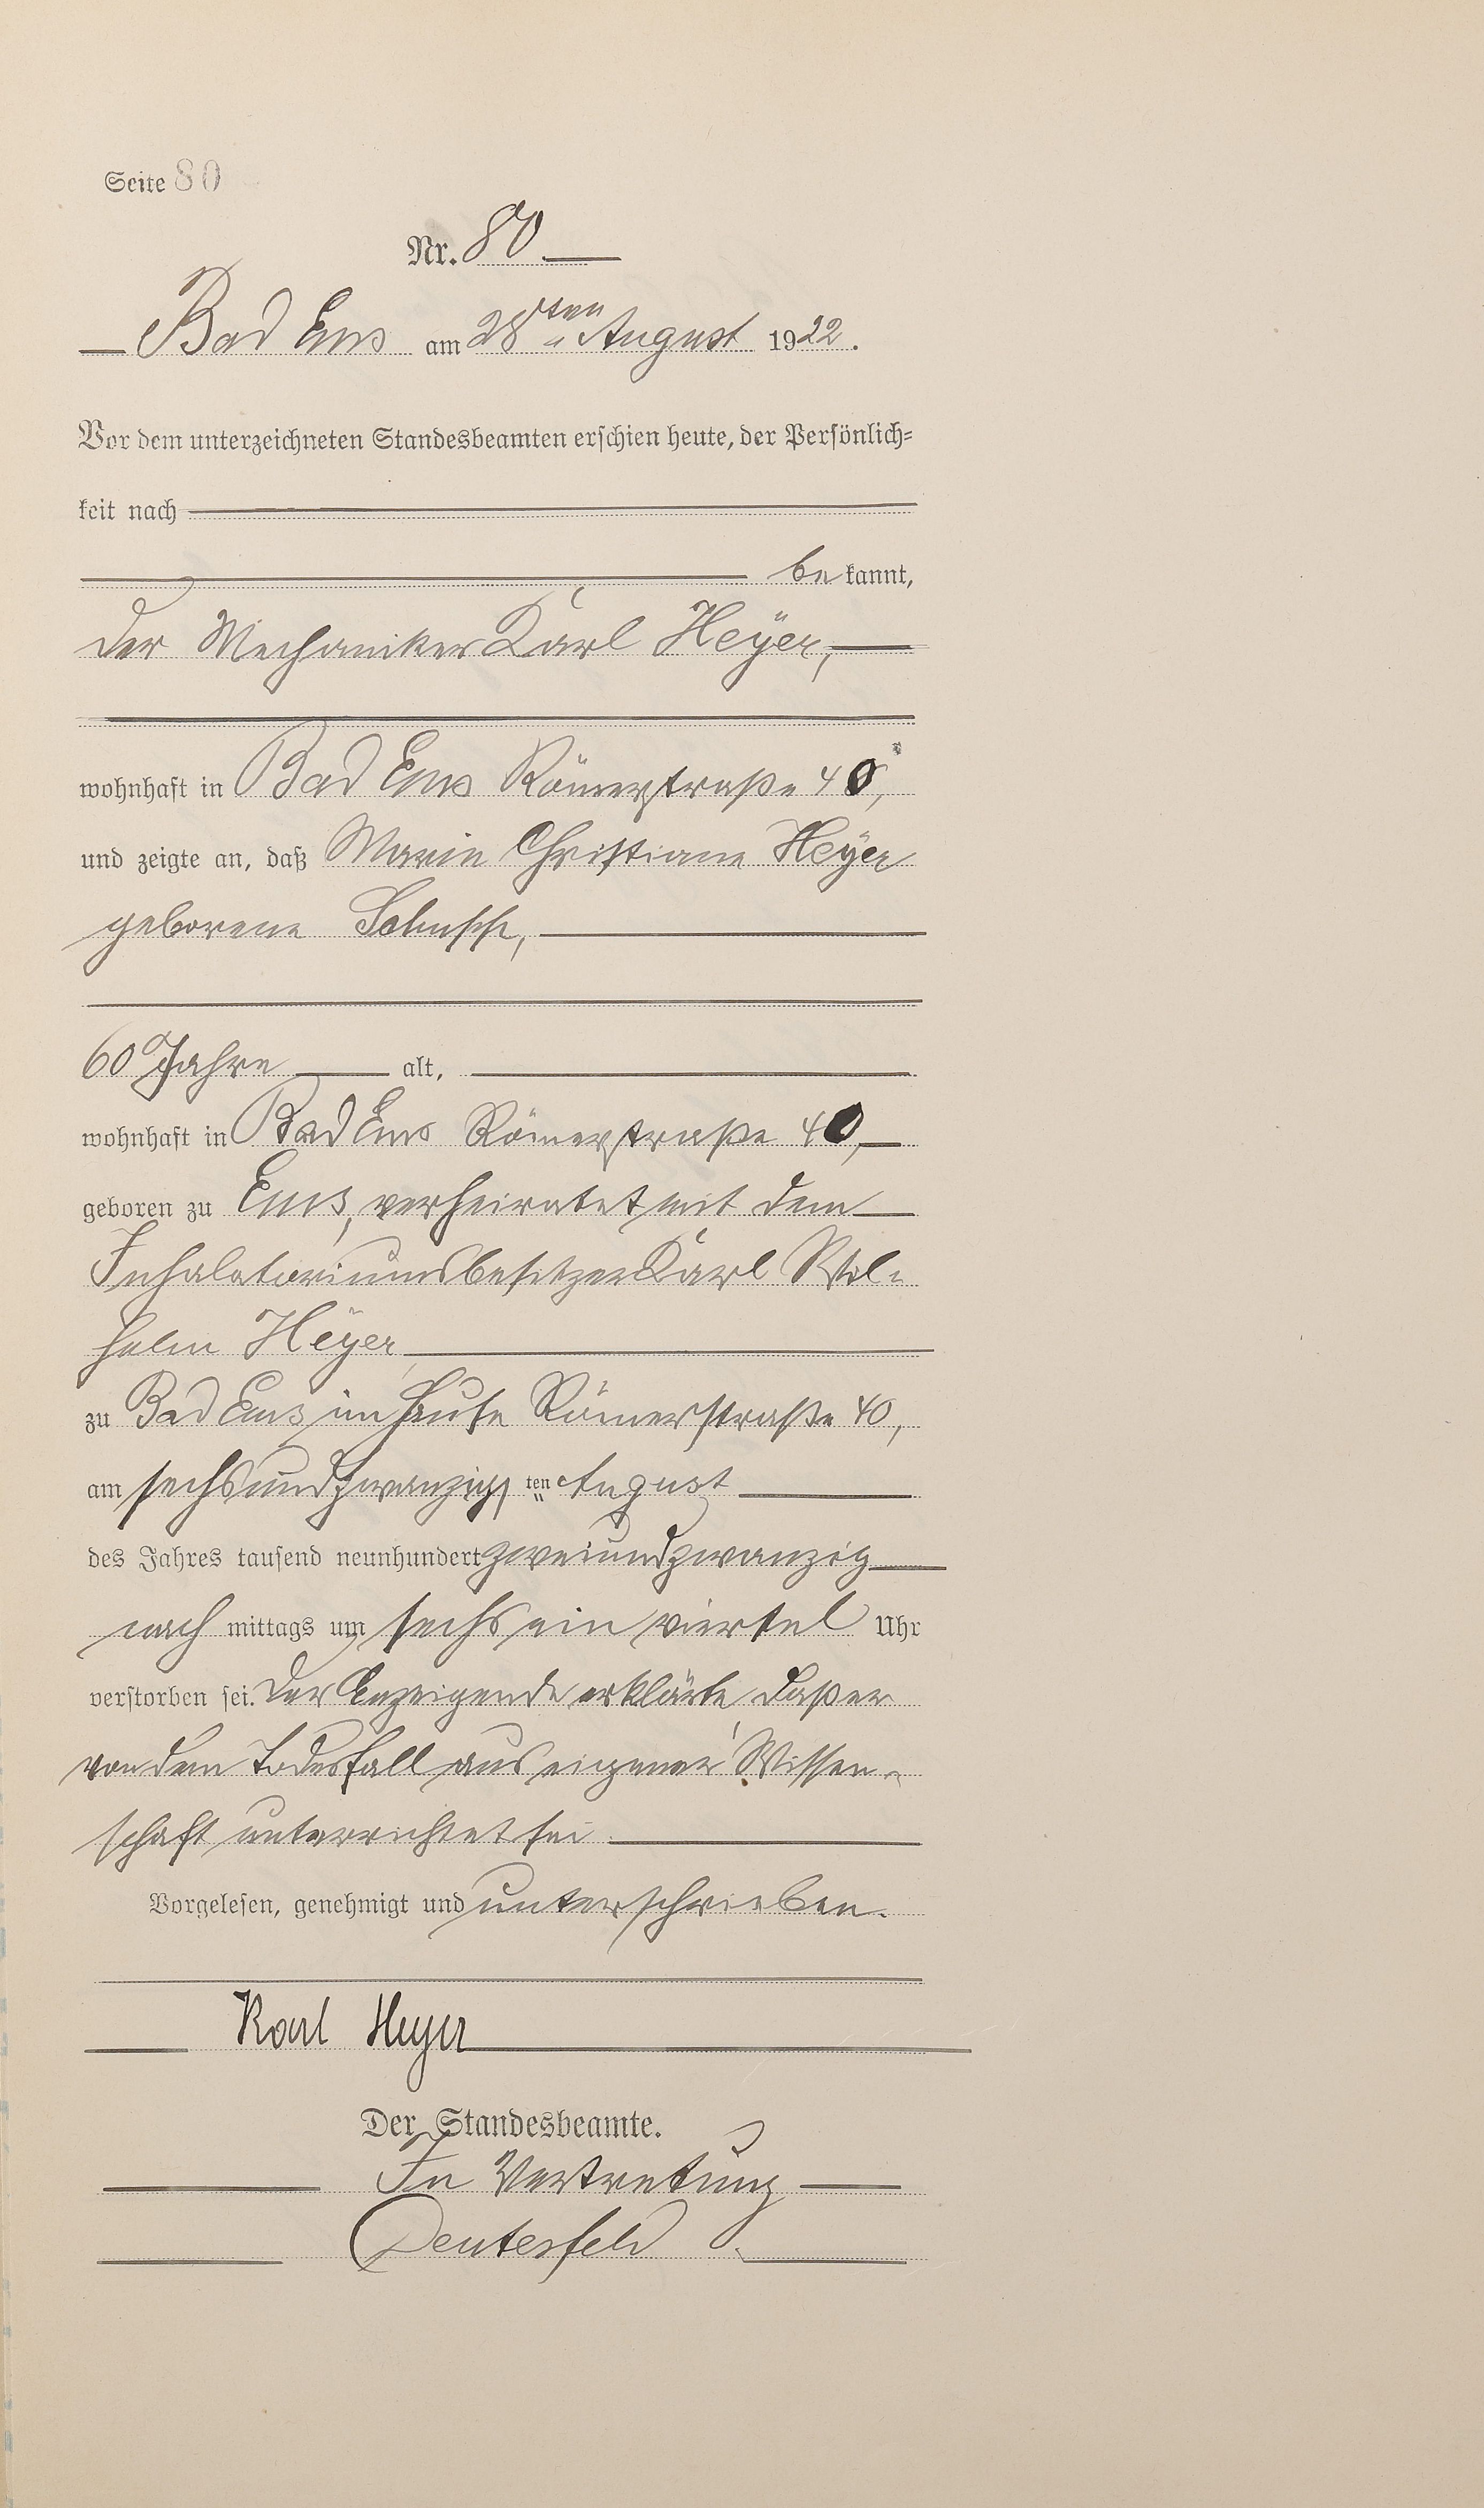 Seite 80
Nr. 80
Bad Ems am 28ten August 1922.
Vor dem unterzeichneten Standesbeamten erschien heute, der Persönlich-
keit nach
bekannt,
der Mechaniker Karl Heyer,
wohnhaft in Bad Ems Römerstraße 40,
und zeigte an, daß Marie Christiane Heyer
geborene
60 Jahre alt,
wohnhaft in Bad Ems Römerstraße 40,
geboren zu Ems, verheiratet mit dem
Inhalatoriumsbesitzer Karl Wil-
helm Heyer
zu Bad Ems im Hause Römerstraße 40,
am sechsundzwanzigsten August
des Jahres tausend neunhundert zweiundzwanzig
nachmittags um sechs ein viertel Uhr
verstorben sei. Der Anzeigende erklärte, daß er
von dem Todesfall aus eigener Wissen-
schaft unterrichtet sei.
Vorgelesen, genehmigt und unterschrieben.
Karl Heyer
Der Standesbeamte.
In Vertretung